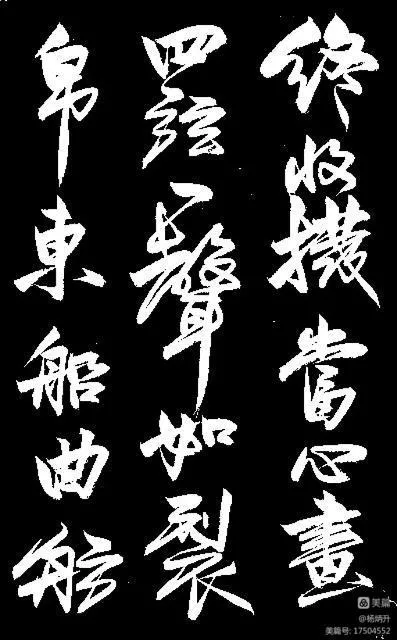 終收撥當心畫
四絃一聲如裂
帛東船西舫
美篇
@杨炳升
美篇号: 17504552